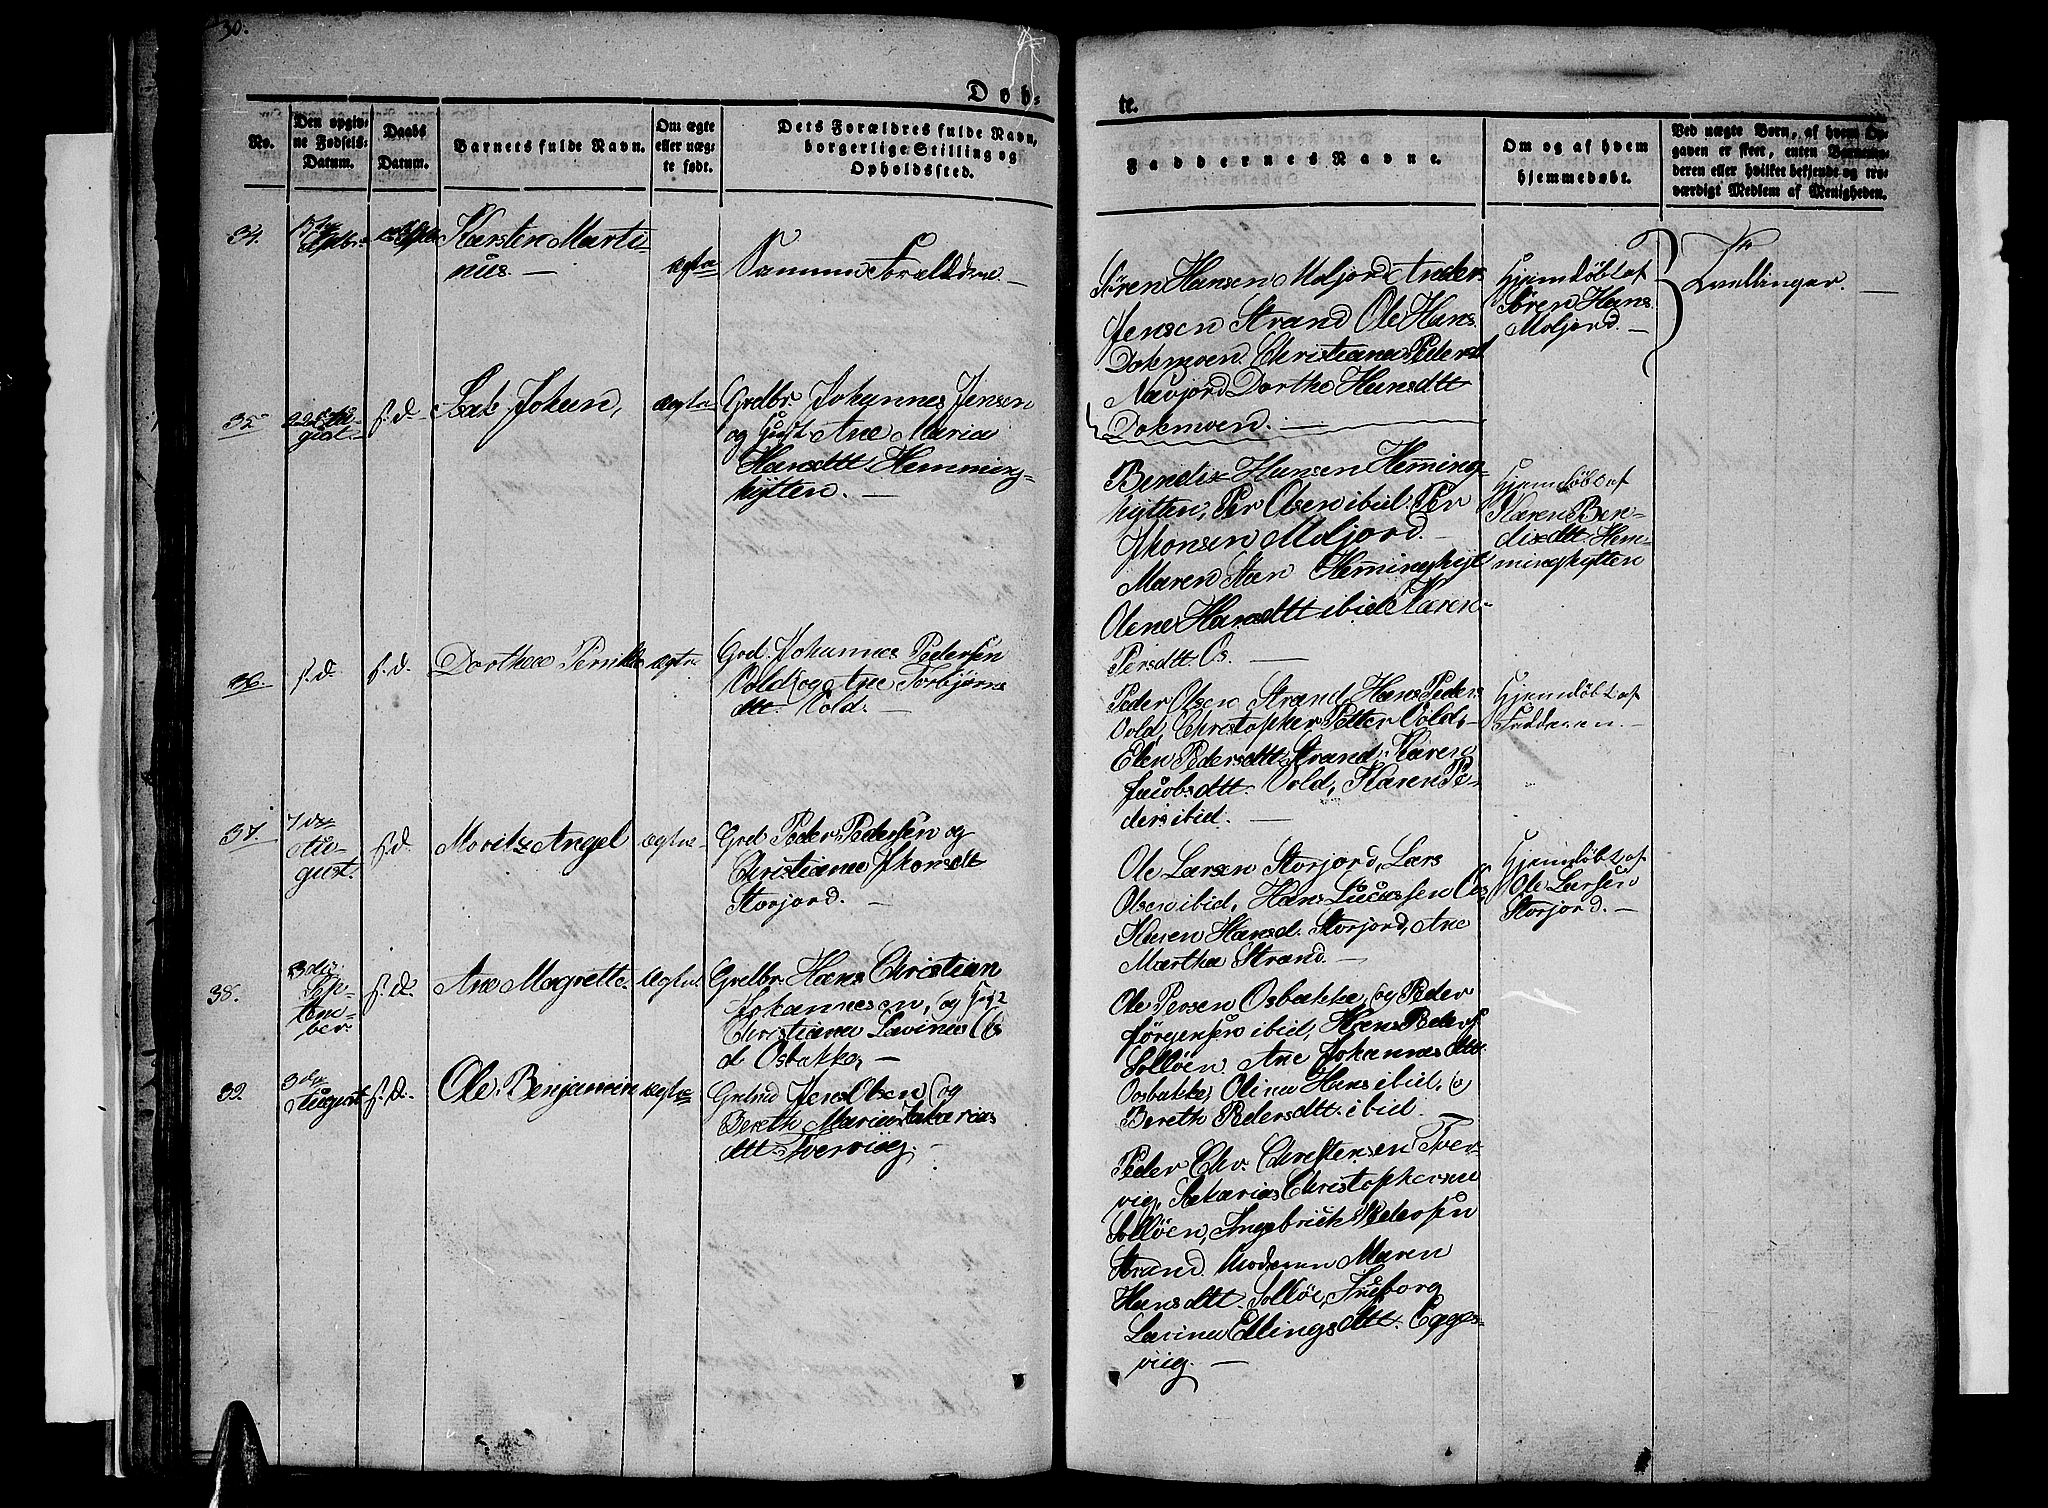 30.
Døb-
te.
No.
Den opgiv-
ne Fødsels-
Datum.
Daabs
Datum.
Barnets fulde Navn.
Om ægte
eller uæg-
te født.
Dets Forældres fulde Navn,
borgerlige Stilling og
Opholdssted.
Faddernes Navne.
Om og af hvem
hjemmedøbt.
Ved uægte Børn, af hvem Op-
gaven er skeet, enten Barnemo-
deren eller hvilket bekjendt og tro-
værdigt Medlem af Menigheden.
34.
Karsten Marti-
nus. —
ægte
Samme Forældre. —
Søren Hansen Moljord Anders
Jensen Strand Ole Hans.
Dokmoen. Christiana Pedersd
Navjord Dorthe Hansdtt
Dokmoen. —
Hjemdøbt af
Søren Hans.
Moljord. —
Tvillinger. —
35
August
s. d.
Johan,
ægte
Grdbr Johannes Jensen
og Ane Maria
Hansdtt Hemming-
hytten. —
Bendix Hansen Heming-
hytten, Per Olsen ibid. Per
Jhonsen Moljord. —
Maren Heminghyt
Olene Hansdtt ibid Karen
Persdtt. Os. —
Hjemdøbt af
Karen Ben-
dixdtt. Hem-
minghytten
36.
s. d.
s. d.
Dorthea
ægte
Grd. Johannes Pedersen
Vold og Ane Torbjørns
dtt. Vold. —
Peder Olsen Strand, Hans Peders
Vold, Christopher Petter Vold,
Elen Pedersdtt. Strand, Karen
Jacobsdtt. Vold, Karen Pe-
ders ibid. —
Hjemdøbt af
Fadderen. —
37.
7de
Au-
gust.
s. d.
Moritz Angel
ægte
Grd Peder Pedersen og
Christiana Jhonsdt
Storjord. —
Ole Larsen Storjord, Lars
Olsen ibid, Hans Lucassen Os,
Karen Hansd. Storjord, Ane
Martha Strand. —
Hjemdøbt af
Ole Larsen
Storjord. —
38.
3die
Sep-
tem-
ber
s. d.
Ane Magrette
ægte
Grdbr. Hans Christian
Johannesen, og
Christiana Lavina
d Osbakke, —
Ole Persen Osbakke, og Peder
Jørgensen ibid, Hans Peders
Solløen, Ane Johannesdtt.
Osbakke, Olina Hans ibid, og
Bereth Pedersdtt. ibid. —
39.
3die
August
s. d.
Ole Benjamin
ægte
Jens Olsen og
Bereth Maria Zakarias
dtt. Tverviig. —
Peder Chr. Christensen Tver-
vig, Zakarias Christophersen
Solløen, Ingebrich Pedersen
Strand. Moderen Maren
Hansdtt. Solløe,
Lavina Ellingsdtt. Egges-
viig. —